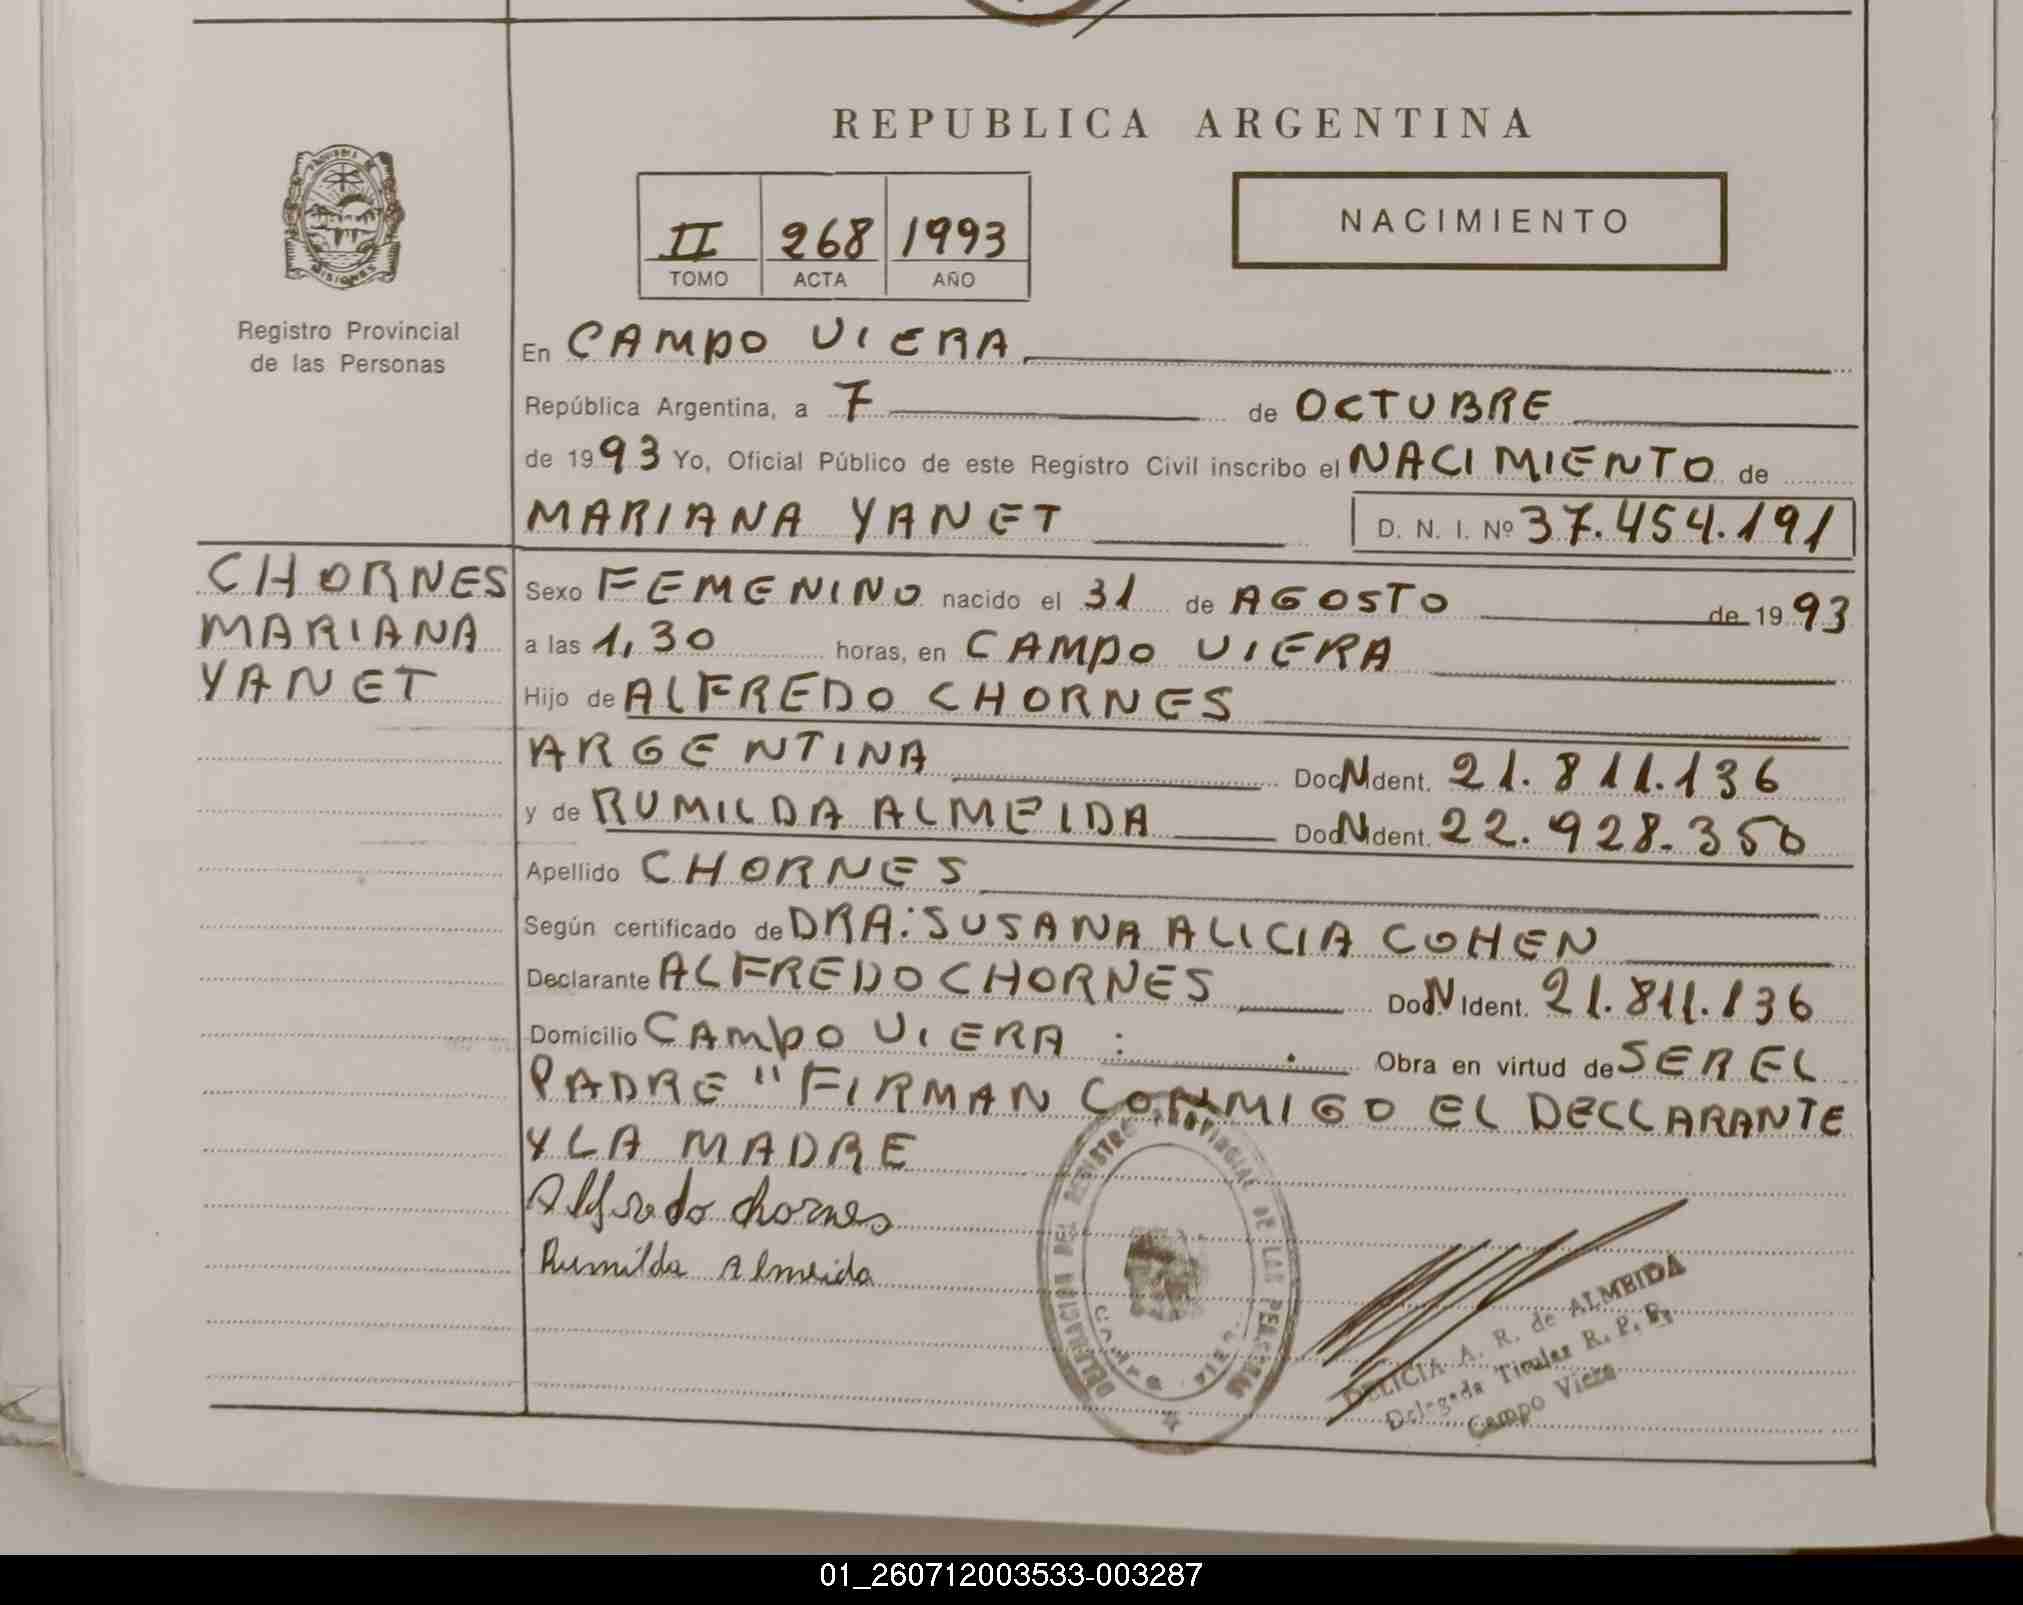 REPUBLICA ARGENTINA
PROVINCIA DE MISIONES
Registro Provincial
de las Personas
II 268 1993
TOMO ACTA AÑO
NACIMIENTO
En CAMPO VIERA
República Argentina, a 7 de OCTUBRE
de 1993 Yo, Oficial Público de este Registro Civil inscribo el NACIMIENTO de
MARIANA YANET D. N. I. Nº 37.454.191
CHORNES
MARIANA
YANET
Sexo FEMENINO nacido el 31 de AGOSTO de 1993
a las 1,30 horas, en CAMPO VIERA
Hijo de ALFREDO CHORNES
ARGENTINA Doc. N Ident. 21.811.136
y de RUMILDA ALMEIDA Doc. N Ident. 22.928.350
Apellido CHORNES
Según certificado de DRA: SUSANA ALICIA COHEN
Declarante ALFREDO CHORNES Doc. N Ident. 21.811.136
Domicilio CAMPO VIERA : . Obra en virtud de SER EL
PADRE " FIRMAN CONMIGO EL DECLARANTE
Y LA MADRE
Alfredo chornes
Rumilda Almeida
DELEGACION DEL REGISTRO PROVINCIAL DE LAS PERSONAS
CAMPO VIERA
DELICIA A. R. de ALMEIDA
Delegada Titular R. P. P.
Campo Viera
01_260712003533-003287